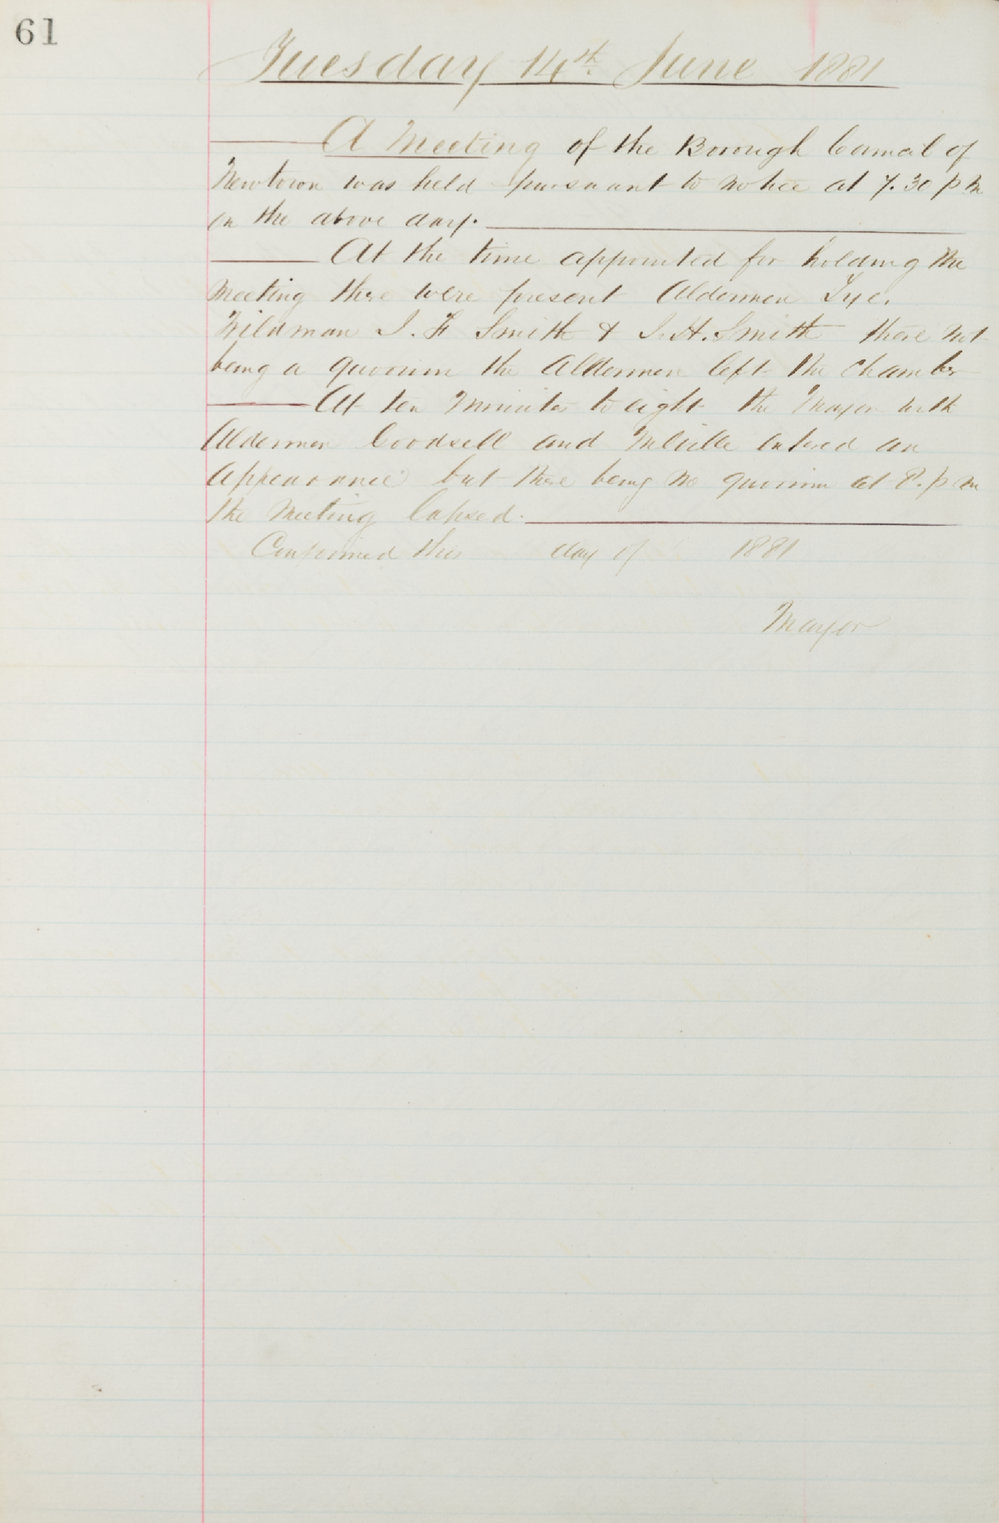 61
Tuesday 14th June 1881
A Meeting of the Borough Council of
Newtown was held pursuant to notice at 7.30 p m
on the above day.
At the time appointed for holding the
Meeting there were present Aldermen Tye,
Wildman J. F Smith & J. H. Smith there not
being a quorum the Aldermen left the Chamber
At ten Minutes to eight the Mayor with
Aldermen Goodsell and Melville entered an
Appearance but there being no quorum at 8. p m
the Meeting lapsed.
Confirmed this day of 1881
Mayor